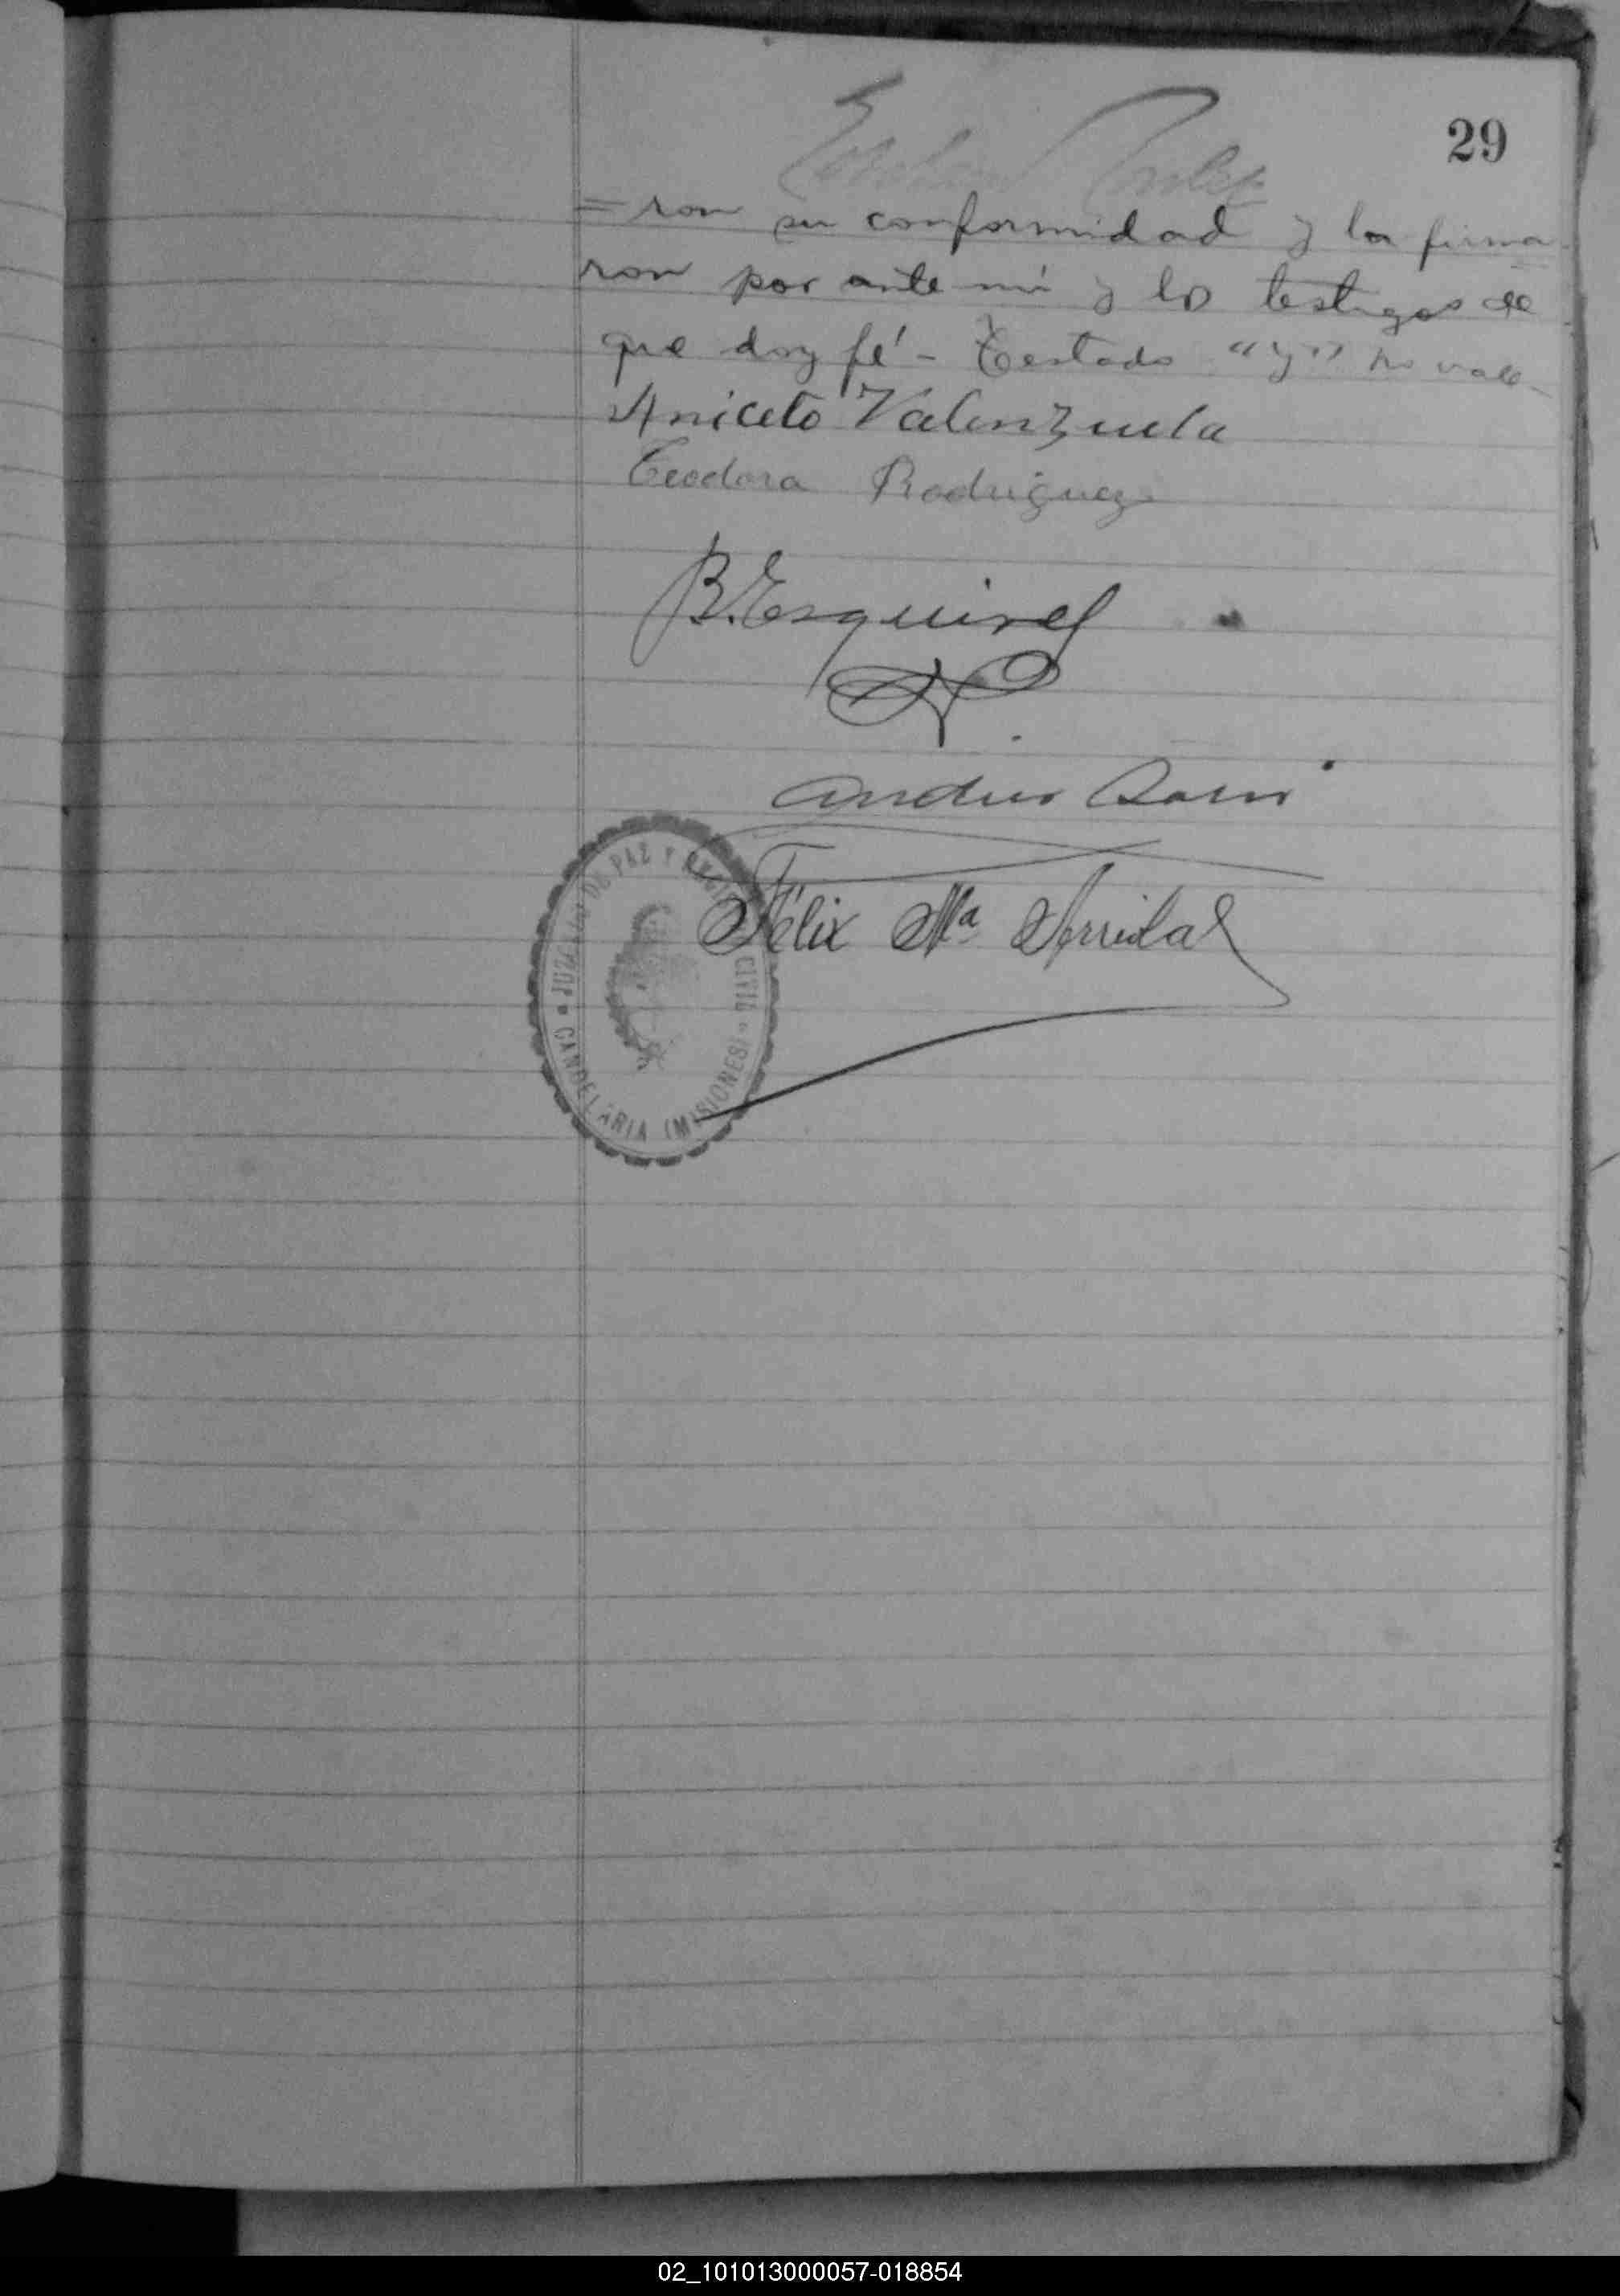 29
= ron su conformidad y la firma
ron por ante mí y los testigos de
que doy fé - Testado "y" no vale -
Aniceto Valenzuela
Teodora Rodriguez
B. Esquivel
Félix Mª
JUZGADO DE PAZ Y REGISTRO CIVIL
CANDELARIA (MISIONES)
02_101013000057-018854